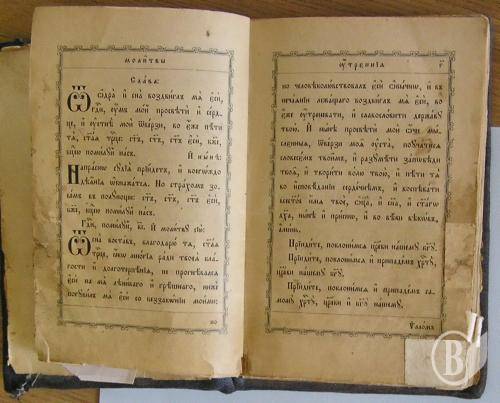 МОЛИ̑твы
Сла́ва:
Ѿ ѻ҆дра̀ и҆ сна̀ воздви́глъ мѧ̀ є҆сѝ,
гдⷭ҇и, ᲂу҆́мъ мо́й просвѣтѝ и҆ се́рд-
це, и҆ ᲂу҆стнѣ̀ моѝ ѿве́рзи, во є҆́же пѣ́ти
тѧ̀, ст҃а́ѧ трⷪ҇це: ст҃ъ, ст҃ъ, ст҃ъ є҆сѝ, бж҃е,
бцⷣею поми́лꙋй на́съ.
И҆ ны́нѣ:
Напра́снѡ сꙋдїѧ̀ прїи́детъ, и҆ коегѡ́ждо
дѣѧ̑нїѧ ѡ҆бнажа́тсѧ. но стра́хомъ зо-
ве́мъ въ полꙋ́нощи: ст҃ъ, ст҃ъ, ст҃ъ є҆сѝ,
бж҃е, бцⷣею поми́лꙋй на́съ.
Гдⷭ҇и, поми́лꙋй, в҃і. И҆ моли́твꙋ сїю̀:
Ѿ сна̀ воста́въ, благодарю̀ тѧ̀, ст҃а́ѧ
трⷪ҇це, ꙗ҆́кѡ мно́гїѧ ра́ди твоеѧ̀ бла́-
гости и҆ долготерпѣ́нїѧ, не прогнѣ́валсѧ
є҆сѝ на мѧ̀ лѣни́ваго и҆ грѣ́шнаго, нижѐ
погꙋби́лъ мѧ̀ є҆сѝ со беззако́ньми мои́ми:
но
ᲂУ҆́ТРЕННїѧ
но человѣколю́бствовалъ є҆сѝ ѻ҆бы́чнѡ, и҆ въ
неча́ѧнїи лежа́щаго воздви́глъ мѧ̀ є҆сѝ, во
є҆́же ᲂу҆́треневати, и҆ славосло́вити держа́вꙋ
твою̀. И҆ ны́нѣ просвѣтѝ моѝ ѻ҆́чи мы́с-
лєнныѧ, ѿве́рзи моѧ̑ ᲂу҆ста̀, поꙋча́тисѧ
словесє́мъ твои̑мъ, и҆ разꙋмѣ́ти за́пѡвѣди
твоѧ̑, и҆ твори́ти во́лю твою̀, и҆ пѣ́ти тѧ̀
во и҆сповѣ́данїи серде́чнѣмъ, и҆ воспѣва́ти
всест҃о́е и҆́мѧ твоѐ, ѻ҆ц҃а̀, и҆ сн҃а, и҆ ст҃а́гѡ
дх҃а, ны́нѣ и҆ при́снѡ, и҆ во вѣ́ки вѣкѡ́въ,
а҆ми́нь.
Прїиди́те, поклони́мсѧ цр҃е́ви на́шемꙋ бг҃ꙋ.
Прїиди́те, поклони́мсѧ и҆ припаде́мъ хрⷭ҇тꙋ̀,
цр҃е́ви на́шемꙋ бг҃ꙋ.
Прїиди́те, поклони́мсѧ и҆ припаде́мъ са-
момꙋ̀ хрⷭ҇тꙋ̀, цр҃е́ви и҆ бг҃ꙋ на́шемꙋ.
Ѱало́мъ
В